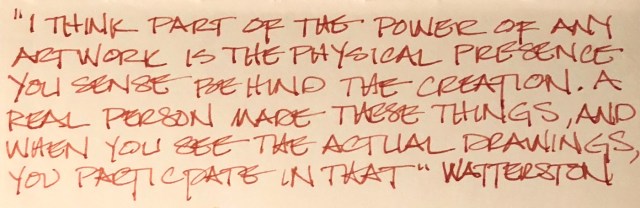 "I THINK PART OF THE POWER OF ANY
ARTWORK IS THE PHYSICAL PRESENCE
YOU SENSE BEHIND THE CREATION. A
REAL PERSON MADE THESE THINGS, AND
WHEN YOU SEE THE ACTUAL DRAWINGS,
YOU PARTICIPATE IN THAT" WATTERSTON